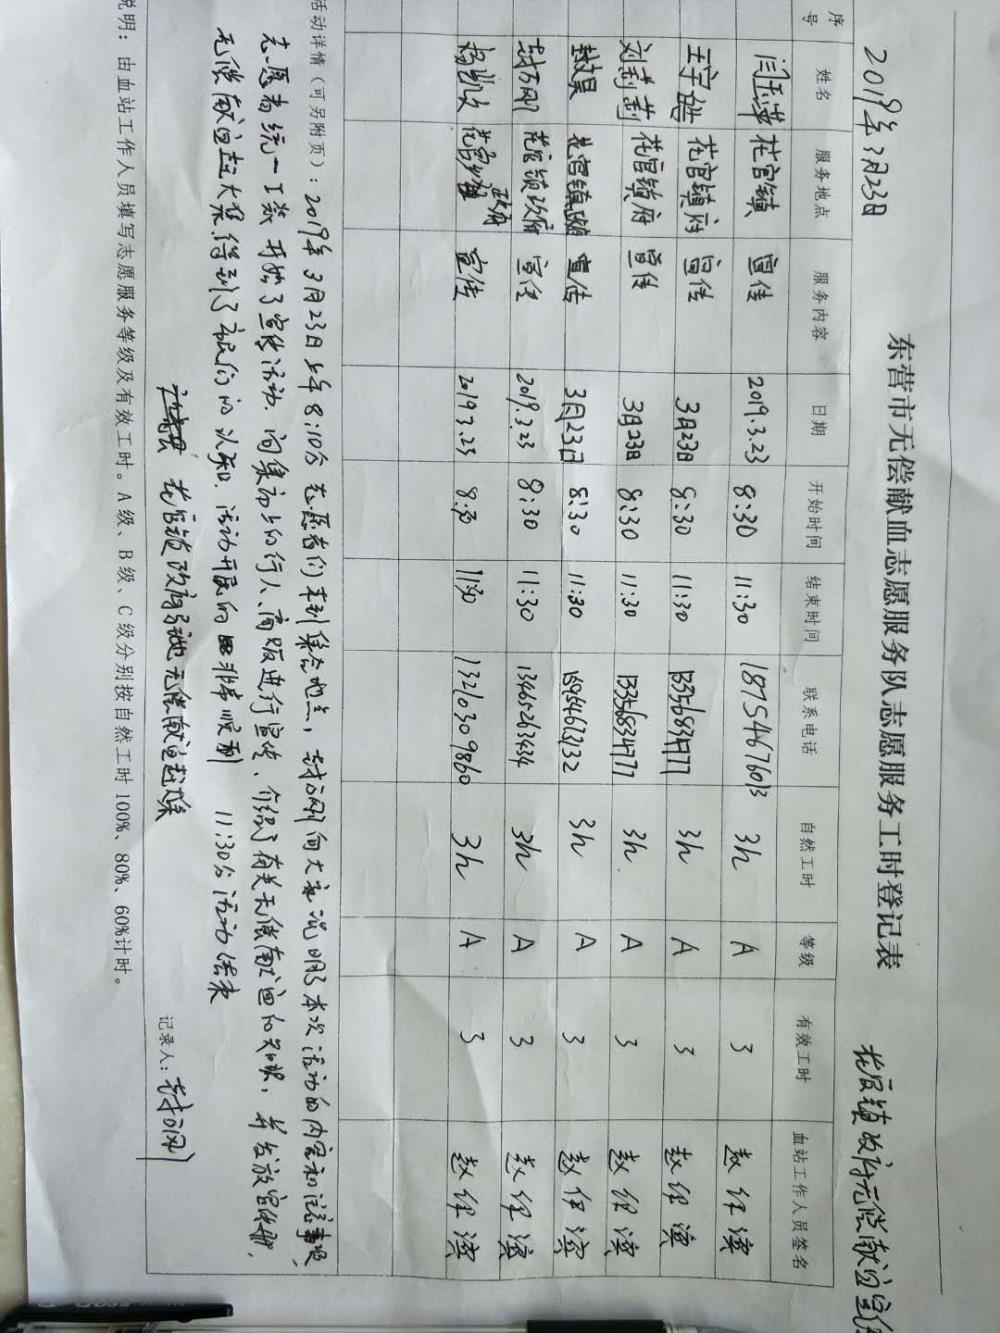 东营市无偿献血志愿服务队志愿服务工时登记表
2019年3月23日 花官镇政府无偿献血宣传
序号 姓名 服务地点 服务内容 日期 开始时间 结束时间 联系电话 自然工时 等级 有效工时 血站工作人员签名
闫玉萍 花官镇 宣传 2019.3.23 8:30 11:30 18754676013 3h A 3 赵保滨
王宇皓 花官镇府 宣传 3月23日 8:30 11:30 13356834777 3h A 3 赵保滨
刘莉莉 花官镇府 宣传 3月23日 8:30 11:30 13356834777 3h A 3 赵保滨
昊 花官镇政府 宣传 3月23日 8:30 11:30 3h A 3 赵保滨
封万刚 花官镇政府 宣传 2019.3.23 8:30 11:30 13465263434 3h A 3 赵保滨
花官镇政府 宣传 2019 3.23 8:30 11:30 13210309860 3h A 3 赵保滨
活动详情(可另附页):2019年3月23日上午8:10分 志愿者们来到集合地点,封万刚向大家说明了本次活动的内容和注意事项,
志愿者统一着装 开始了宣传活动.向集市上的行人、商贩进行宣传、介绍了有关无偿献血的知识,并发放宣传册,
无偿献血这大衆.得到了市民们的认知.活动开展的非常顺利 11:30分活动结束
花官镇政府 无偿献血
记录人:封万刚
说明:由血站工作人员填写志愿服务等级及有效工时。A级、B级、C级分别按自然工时100%、80%、60%计时。